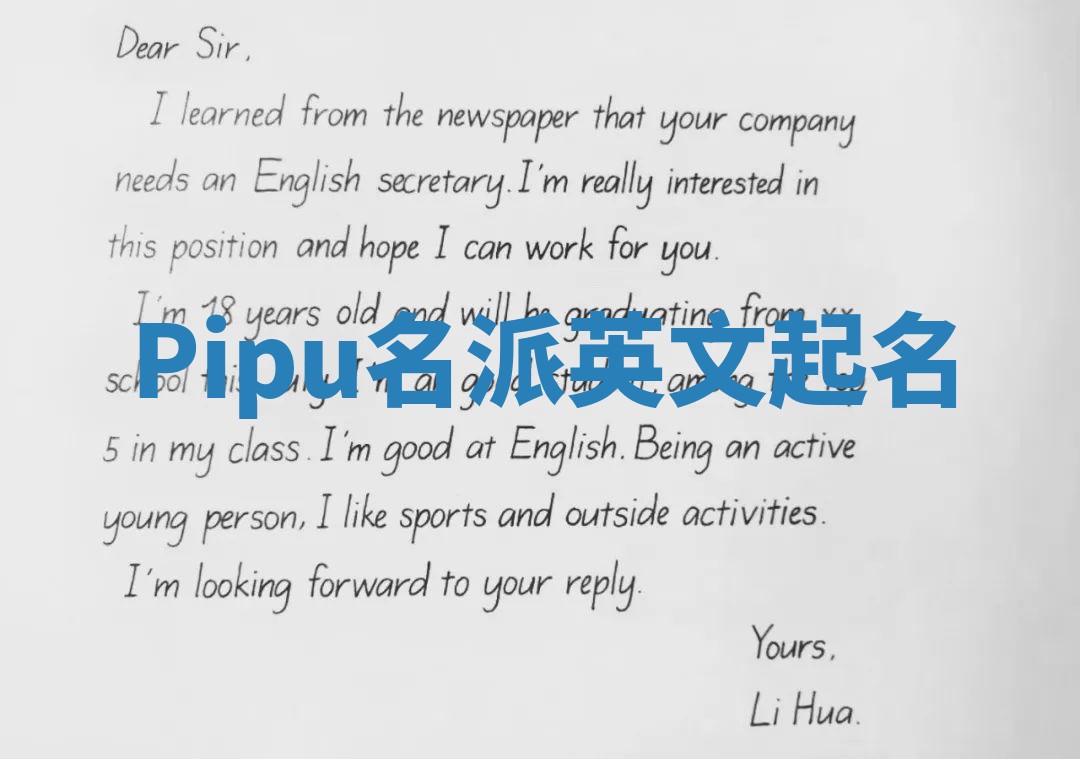 Dear Sir,
I learned from the newspaper that your company
needs an English secretary. I'm really interested in
this position and hope I can work for you.
I'm 18 years old and will be graduating from xx
Pipu名派英文起名
school this July. I'm a good student, among the top
5 in my class. I'm good at English. Being an active
young person, I like sports and outside activities.
I'm looking forward to your reply.
Yours,
Li Hua.